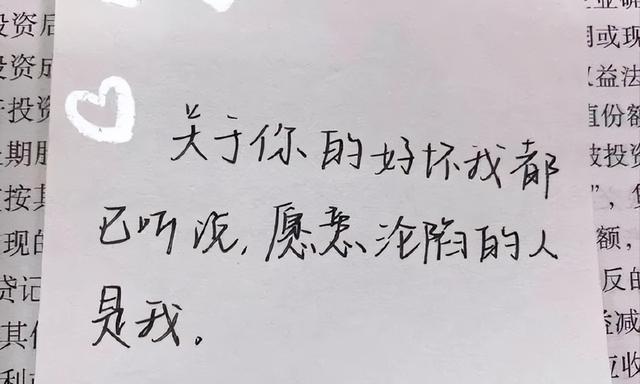 关于你的好坏我都
已听说,愿意沦陷的人
是我。
投资后
投资成
投资
期
按其
现的
贷记
其
或现
益法
值份额
投资
”,
额,
反的
益减
应收